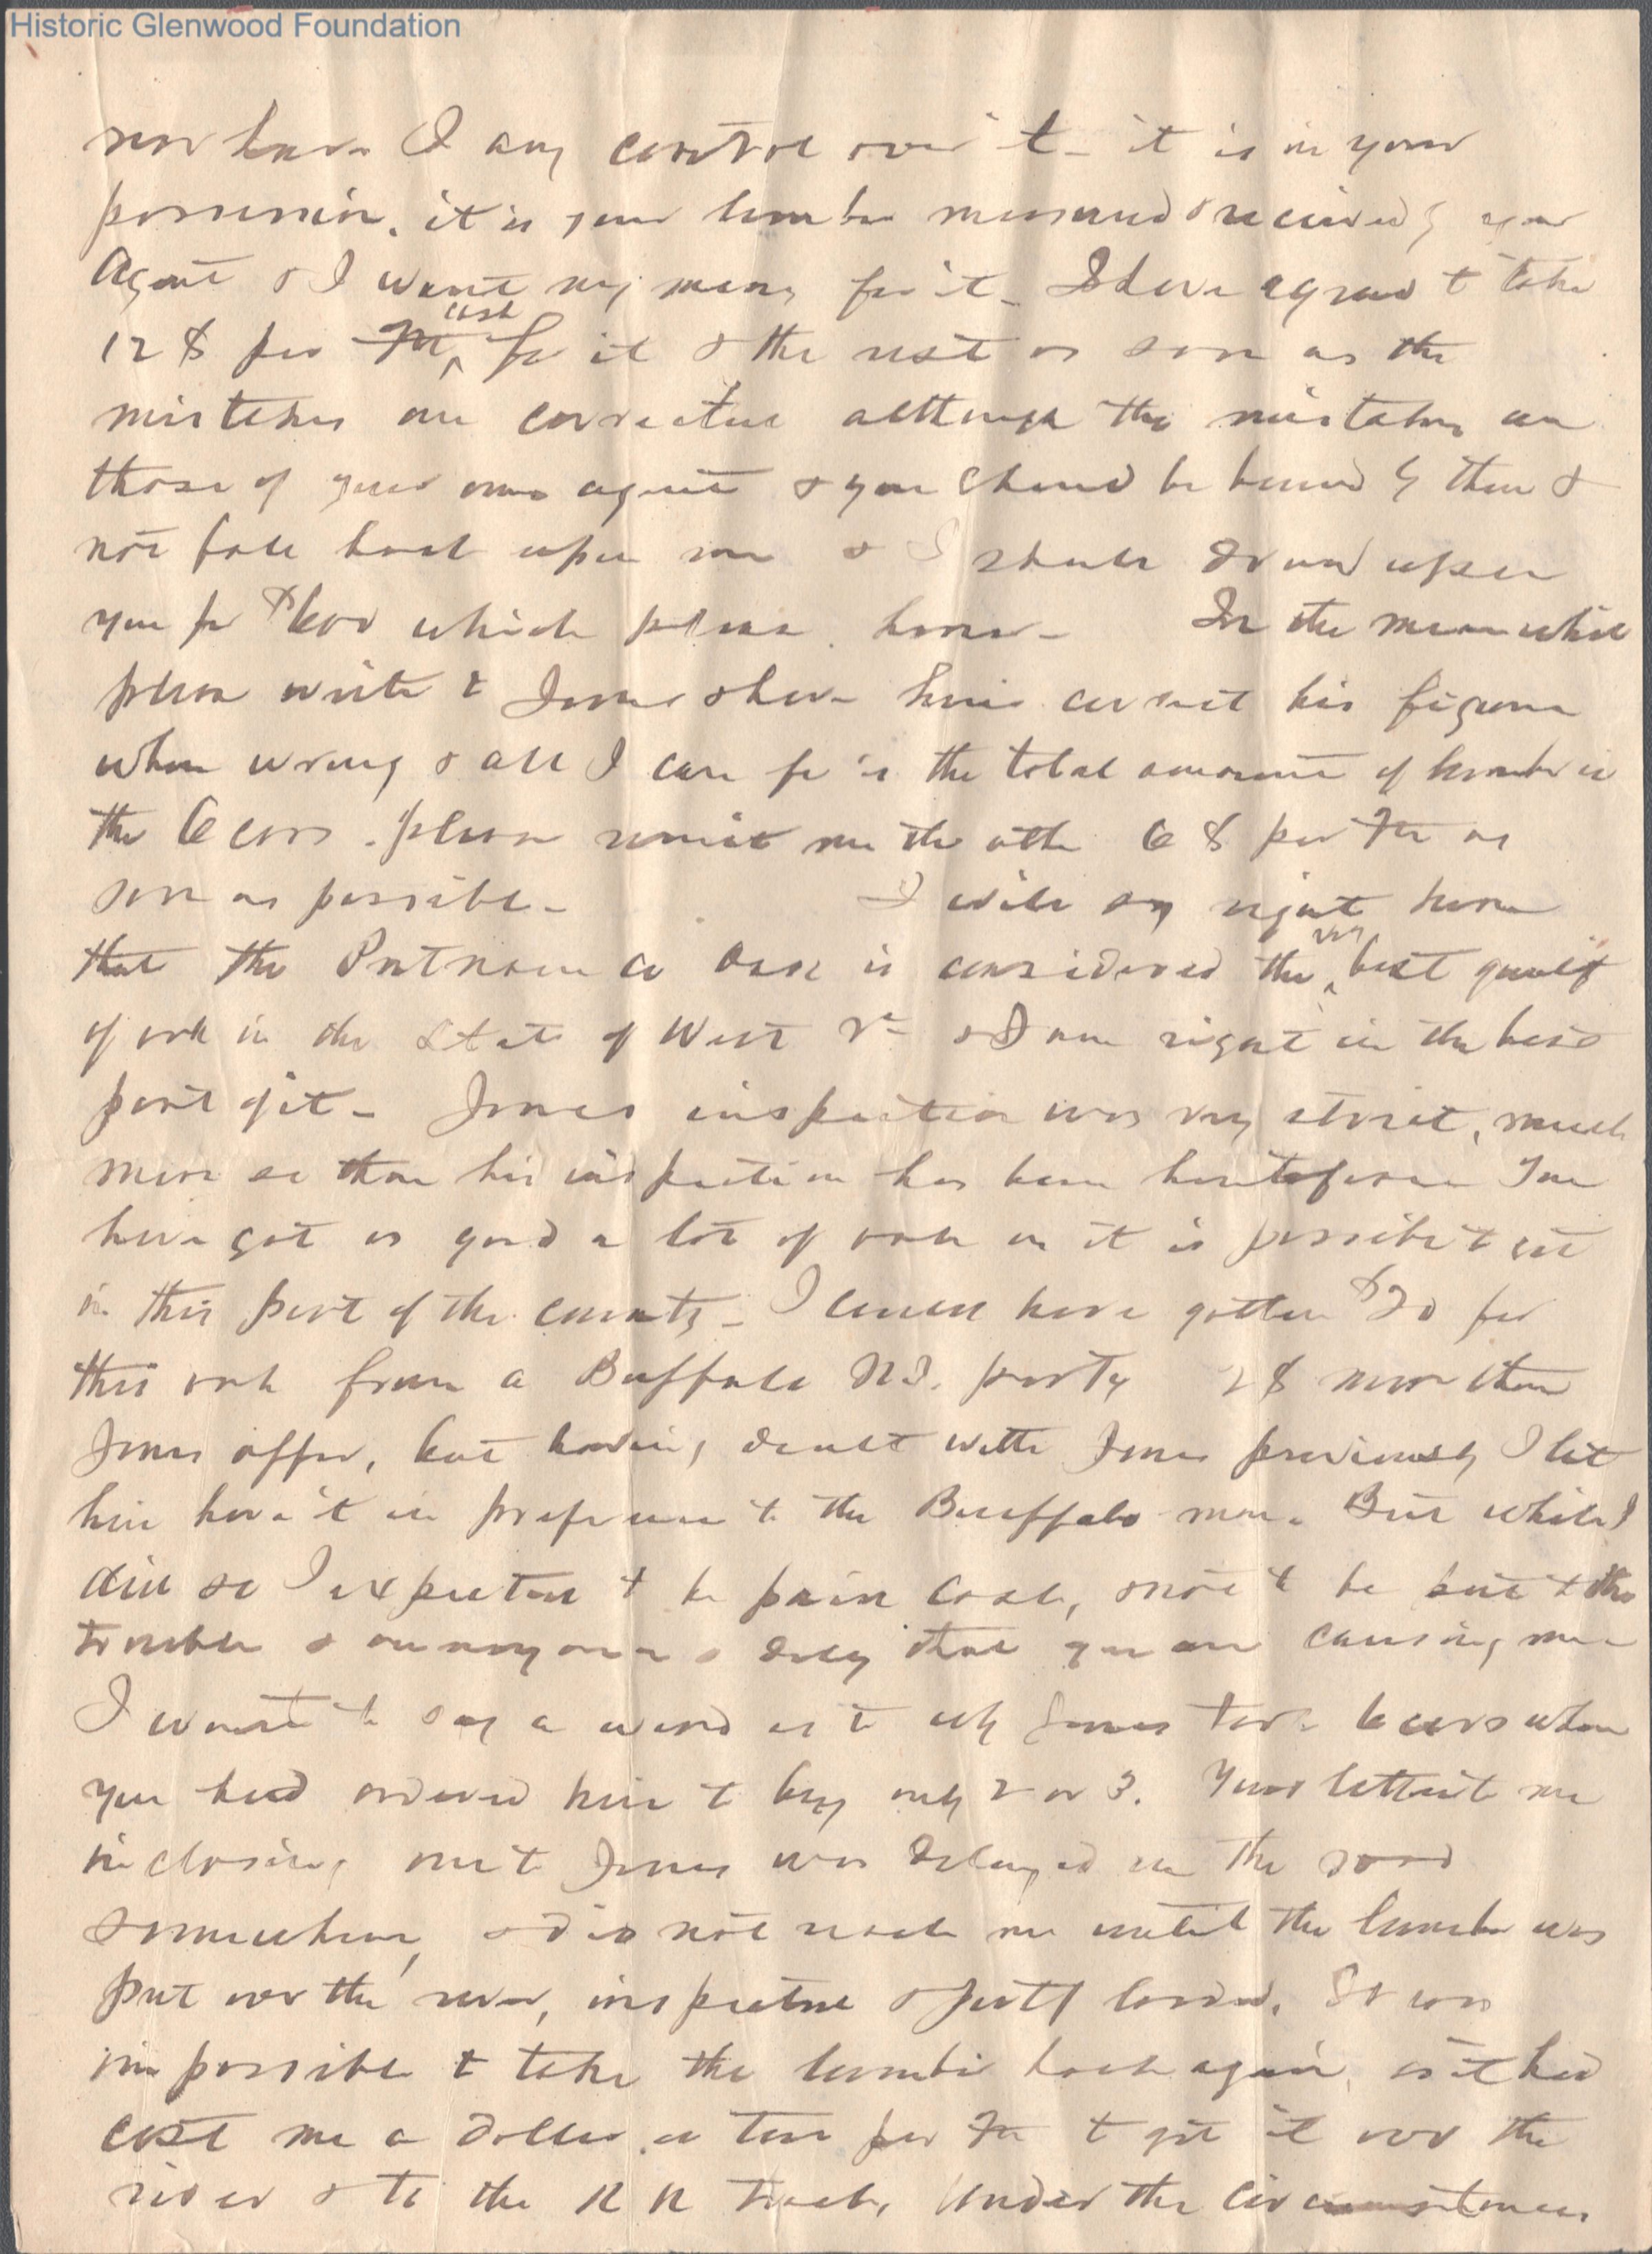 Historic Glenwood Foundation
nor have I any control over it - it is in your
possession. it is your lumber measured & received by your
Agent & I want my money for it - I have agreed to take
12 $ per M cash for it & the rest as soon as the
mistakes are corrected although the mistakes are
those of your own agents & you should be bound by them &
not fall back upon me & I shall draw upon
you for $600 which please honor - In the mean while
please write to Jones & have him correct his figures
when wrong & all I care for is the total amount of lumber in
the 6 cars. please remit me the other 6 $ per M as
soon as possible - I will say right here
that the Putnam Co Oak is considered the very best quality
of oak in the State of West Va & I am right in the best
part of it - Jones inspection was very strict, much
more so than his inspection has been heretofore You
have got as good a lot of oak as it is possible to get
in this part of the country - I could have gotten $20 for
this oak from a Buffalo N.Y. party 2 $ more than
Jones offer, but having dealt with Jones previously I let
him have it in preference to the Buffalo man. But while I
did so I expected to be paid cash, & not to be put to the
trouble & annoyance & delay that you are causing me
I want to say a word as to why Jones took 6 cars when
you had ordered him to buy only 2 or 3. Your letter to me
inclosing one to Jones was delayed on the road
somewhere, & did not reach me until the lumber was
put over the river, inspected & partly loaded. It was
impossible to take the lumber back again, as it had
cost me a dollar or two per M to get it over the
river & to the R R track, Under the circumstances